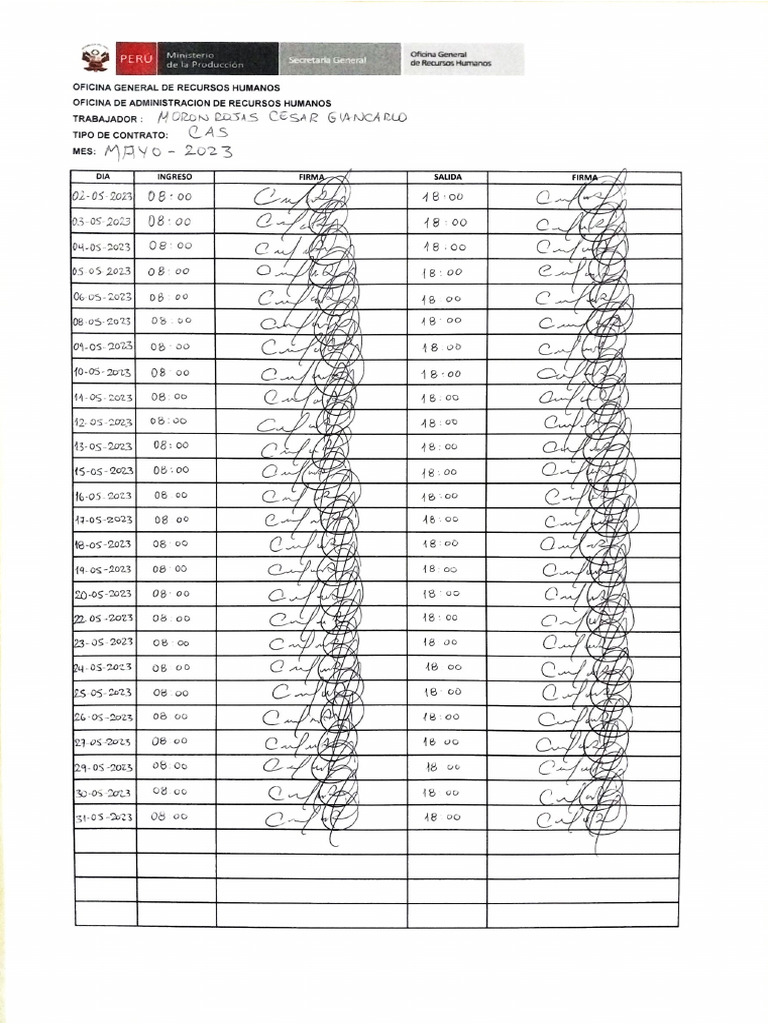 PERÚ Ministerio de la Producción Secretaría General Oficina General de Recursos Humanos
OFICINA GENERAL DE RECURSOS HUMANOS
OFICINA DE ADMINISTRACION DE RECURSOS HUMANOS
TRABAJADOR : MORON ROJAS CESAR GIANCARLO
TIPO DE CONTRATO: CAS
MES: MAYO - 2023
DIA INGRESO FIRMA SALIDA FIRMA
02-05-2023 08:00 18:00
03-05-2023 08:00 18:00
04-05-2023 08:00 18:00
05-05 2023 08:00 18:00
06-05-2023 08:00 18:00
08-05-2023 08:00 18:00
09-05-2023 08:00 18:00
10-05-2023 08:00 18:00
11-05-2023 08:00 18:00
12-05-2023 08:00 18:00
13-05-2023 08:00 18:00
15-05-2023 08:00 18:00
16-05-2023 08 00 18:00
17-05-2023 08 00 18:00
18-05-2023 08:00 18:00
19-05-2023 08:00 18:00
20-05-2023 08:00 18:00
22-05-2023 08:00 18:00
23-05-2023 08:00 18:00
24-05-2023 08 00 18 00
25 05-2023 08:00 18:00
26-05-2023 08:00 18:00
27-05-2023 08 00 18 00
29-05-2023 08:00 18 00
30-05 2023 08 00 18:00
31-05-2023 08 00 18:00